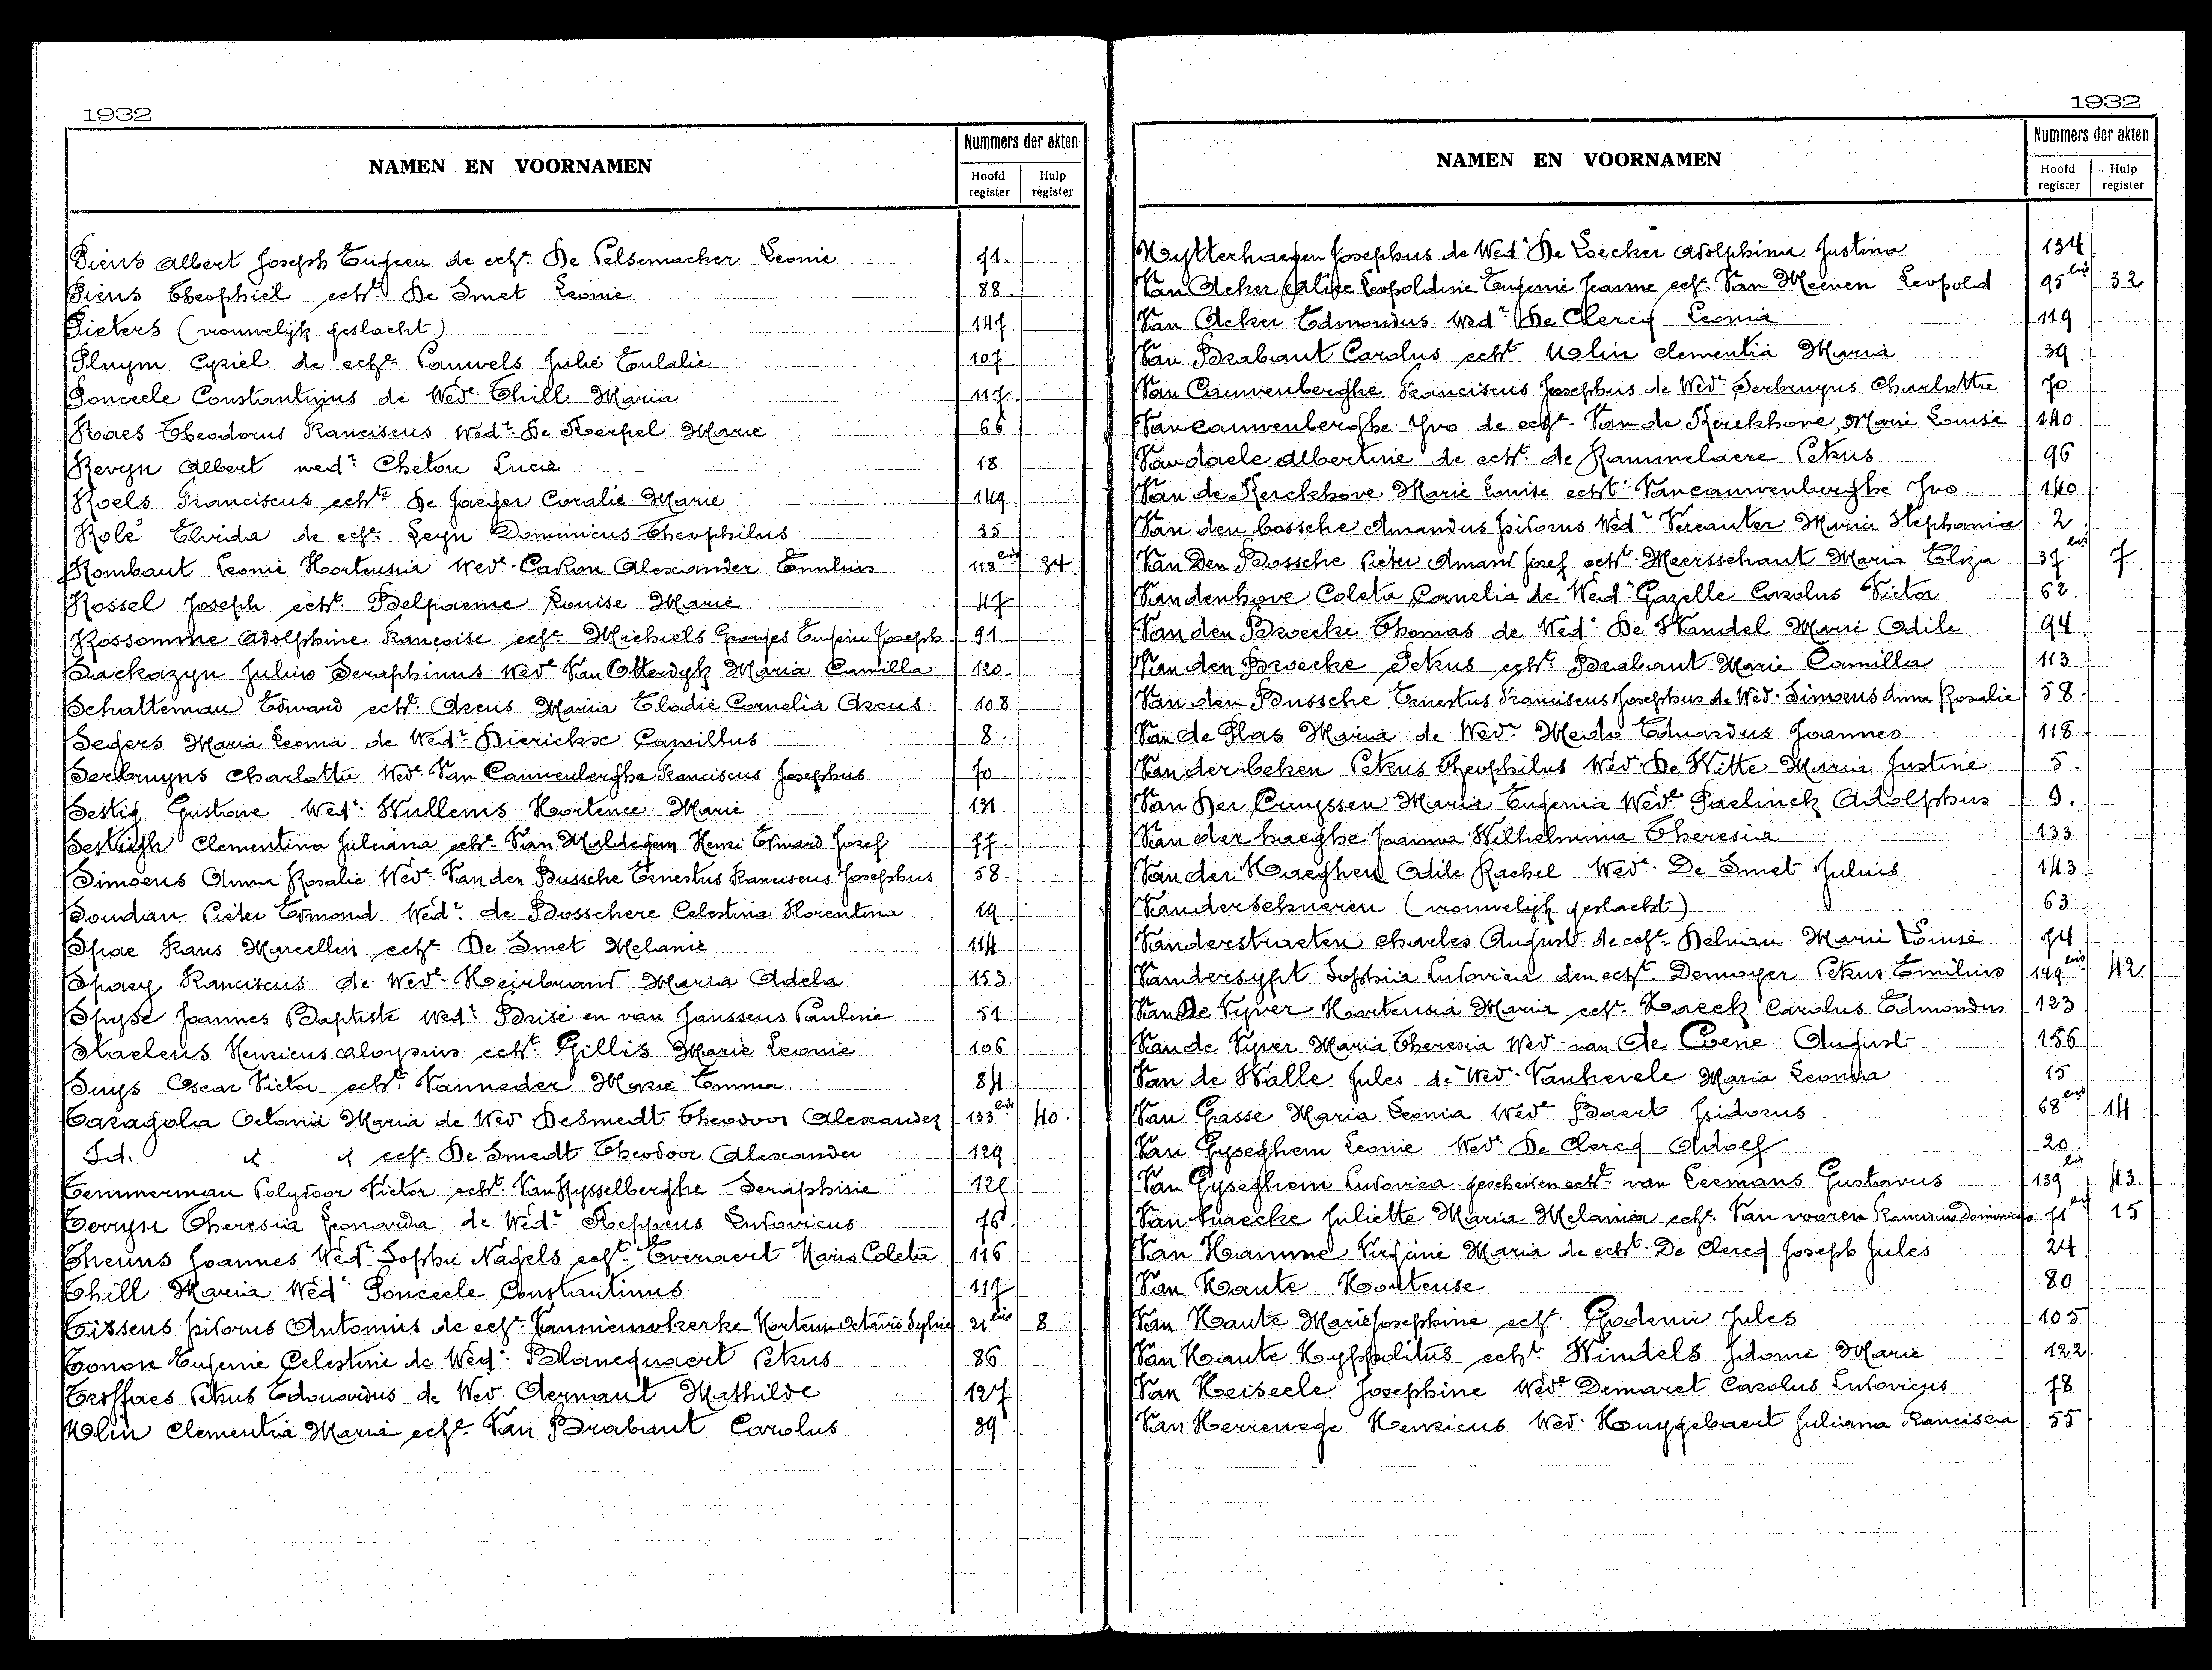 1932
NAMEN EN VOORNAMEN
Nummers der akten
Hoofd register
Hulp register
Piens Albert Joseph Eugeen de echt. De Pelsemacker Leonie 71.
Piens Theophiel echt. De Smet Leonie 88.
Pieters (vrouwelijk geslacht) 147.
Pluym Cyriel de echt. Pauwels Julie Eulalie 107
Ponceele Constantinus de Wede. Thill Maria 117
Raes Theodorus Franciscus Wedr. De Kerpel Marie 66
Revyn Albert wedr. Cheton Lucie 18
Roels Franciscus echte De Jaeger Coralie Marie 149
Rolé Elvida de echt. Leyn Dominicus Theophilus 35
Rombaut Leonie Hortensia Wede. Carron Alexander Emilius 118bis 34.
Rossel Joseph echt. Belpaeme Louise Marie 47
Rossomme Adolphine Françoise echt. Michiels Georges Eugène Joseph 91.
Sackazyn Julius Seraphinus Wede Van Otterdyk Maria Camilla 120
Schatteman Edward echt. Arens Maria Elodie Cornelia Arens 108
Segers Maria Leonia de Wedr. Dierickx Camillus 8.
Serbruyns Charlotta Wede. Van Cauwenberghe Franciscus Josephus 70.
Sestig Gustave Wedr. Wullems Hortence Marie 131.
Sestigh Clementina Juliana echt. Van Maldegem Henri Edward Jozef 77.
Simoens Anna Rosalie Wede. Van den Bussche Ernestus Franciscus Josephus 58.
Soudan Pieter Edmond Wedr. de Bosschere Celestina Florentine 19.
Spae Frans Marcellin echt. De Smet Melanie 114.
Spaey Franciscus de Wede. Heirbrand Maria Adela 153
Spyse Joannes Baptiste Wedr. Brise en van Janssens Pauline 51
Staelens Henricus Aloysius echt. Gillis Marie Leonie 106
Suys Oscar Victor echt. Vanneder Marie Emma. 84
Taragola Octavia Maria de Wed DeSmedt Theodoor Alexander 133bis 40.
Id. " " echt. De Smedt Theodoor Alexander 129
Temmerman Polydoor Victor echt. Van Rysselberghe Seraphine 128
Terryn Theresia Leonarda de Wedr. Keppens Ludovicus 76.
Theuns Joannes Wedr. Sophie Nagels echt. Evenaert Maria Coleta 116
Thill Maria Wede Ponceele Constantinus 117
Tissens Isidorus Antonius de echt. Vannieuwkerke Hortense Octavie Sylvie 21bis 8
Tonon Eugenie Celestine de Wedr. Blancquaert Petrus 86
Troffaes Petrus Edouardus de Wed. Aernaut Mathilde 127
Ulin Clementia Maria echt. Van Brabant Carolus 39
1932
NAMEN EN VOORNAMEN
Nummers der akten
Hoofd register
Hulp register
Uytterhaegen Josephus de Wede De Loecker Adolphina Justina 134
Van Acker Alise Leopoldine Eugenie Jeanne echt. Van Meenen Leopold 95bis 32
Van Acker Edmondus Wedr. De Clercq Leonia 119
Van Brabant Carolus echt Ulin Clementia Maria 39.
Van Cauwenberghe Franciscus Josephus de Wede. Serbruyns Charlotta 70
Vancauwenberghe Yvo de echt. Van de Kerckhove Marie Louise 140
Vandaele Albertine de echt. de Rammelaere Petrus 96
Van de Kerckhove Marie Louise echt. Vancauwenberghe Yvo 140
Van den bossche Amandus Isidorus Wedr Vercauter Maria Stephania 2
Van Den Bossche Pieter Amand Jozef echt. Meersschaut Maria Eliza 37bis 7.
Vandenhove Coleta Cornelia de Wedr. Gazelle Carolus Victor 62.
Van den Broecke Thomas de Wede. De Wandel Marie Odile 94
Van den Broecke Petrus echt. Brabant Marie Camilla 113
Van den Bussche Ernestus Franciscus Josephus de Wed. Simoens Anna Rosalie 58.
Van de Plas Maria de Wedr. Eduardus Joannes 118
Van der beken Petrus Theophilus Wed. De Witte Maria Justine 5.
Van Der Cruyssen Maria Eugenia Wede Paelinck Adolphus 9.
Van der haeghe Joanna Wilhelmina Theresia 133
Van der Haeghen Odile Rachel Wede. De Smet Julius 143
Vanderschueren (vrouwelijk geslacht) 63
Vanderstraeten Charles August de echt. Delvian Marie Louise 74
Vandersypt Sophia Ludovica den echt. Demoyer Petrus Emilius 149bis 42
Van De Vyver Hortensia Maria echt. Haeck Carolus Edmondus 123
Van de Vyver Maria Theresia Wed van De Coene August 156
Van de Walle Jules de Wed. Vanhevele Maria Leonia 15
Van Gasse Maria Leonia Wede Baert Isidorus 68bis 14.
Van Gyseghem Leonie Wed. De Clercq Adolf 20.
Van Gyseghem Ludovica gescheiden echt. van Leemans Gustavus 139bis 43.
Van haecke Juliette Maria Melania echt. Van vooren Franciscus Dominicus 71bis 15
Van Hamme Virginie Maria de echt. De Clercq Joseph Jules 24
Van Haute Hortense 80
Van Haute Marie Josephine echt. Godenir Jules 105
Van Haute Hyppolitus echt. Windels Idonie Marie 122
Van Heiseele Josephine Wede Demaret Carolus Ludovicus 78
Van Herrewege Henricus Wed. Huygebaert Juliana Francisca 55